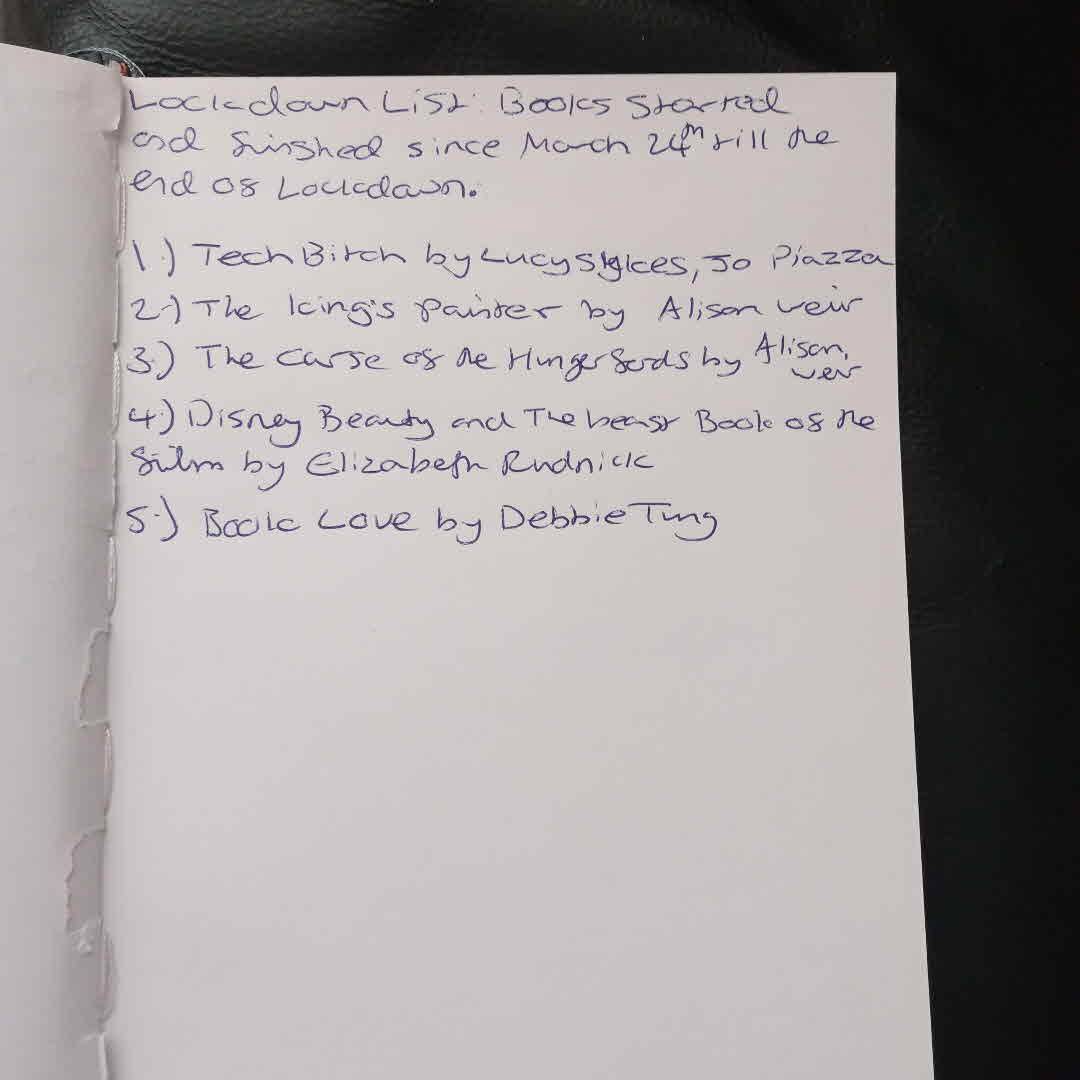 Lockdown List: Books Started
and finished since March 24th till the
end of Lockdown.
1.) Tech Bitch by Lucy Sykes, Jo Piazza
2.) The King's Painter by Alison Weir
3.) The Curse of the Hungerfords by Alison
Weir
4.) Disney Beauty and The beast Book of the
film by Elizabeth Rudnick
5.) Book Love by Debbie Tung